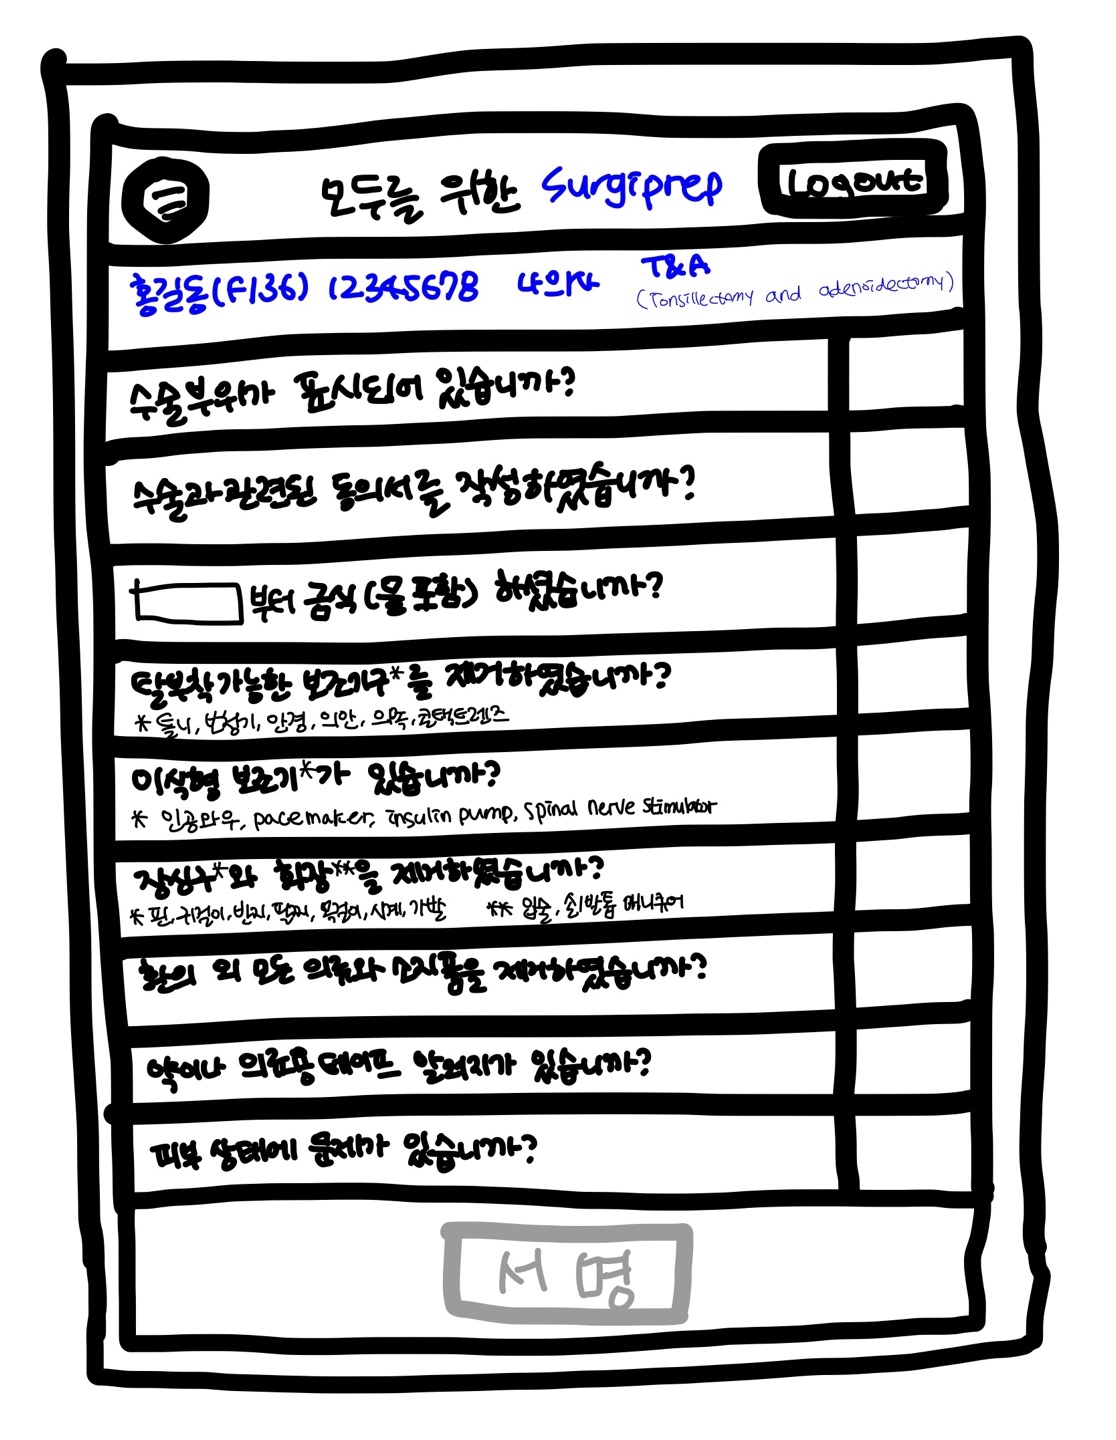 모두를 위한 Surgiprep
Logout
홍길동(F/36) 12345678 나의사 T&A
(Tonsillectomy and adenoidectomy)
수술부위가 표시되어 있습니까?
수술과 관련된 동의서를 작성하였습니까?
부터 금식(물 포함) 하셨습니까?
탈부착가능한 보조기구*를 제거하였습니까?
* 틀니, 보청기, 안경, 의안, 의족, 콘택트렌즈
이식형 보조기*가 있습니까?
* 인공와우, pacemaker, insulin pump, spinal nerve stimulator
장신구*와 화장**을 제거하였습니까?
* 핀, 귀걸이, 반지, 팔찌, 목걸이, 시계, 가발 ** 입술, 손/발톱 매니큐어
환의 외 모든 의류와 소지품을 제거하였습니까?
약이나 의료용테이프 알러지가 있습니까?
피부 상태에 문제가 있습니까?
서명